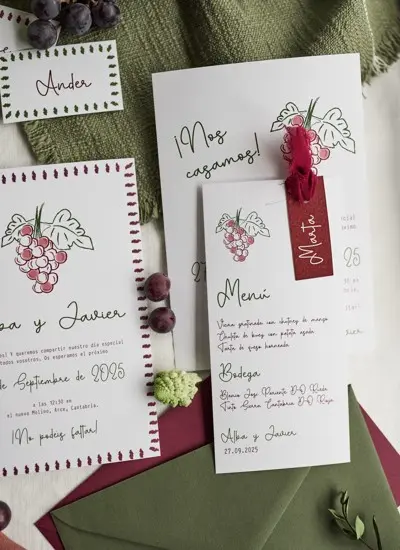 Ander
¡Nos
casamos!
Marta
25
lba y Javier
os! Y queremos compartir nuestro día especial
todos vosotros. Os esperamos el próximo
de Septiembre de 2025
a las 12:30 en
el nuevo Molino, Arce, Cantabria.
¡No podéis faltar!
Menú
Vieira gratinada con chutney de mango
Chuleta de buey con patata asada
Tarta de queso horneada
Bodega
Blanco José Pariente D.O Rueda
Tinto Sierra Cantabria D.O Rioja
Alba y Javier
27.09.2025